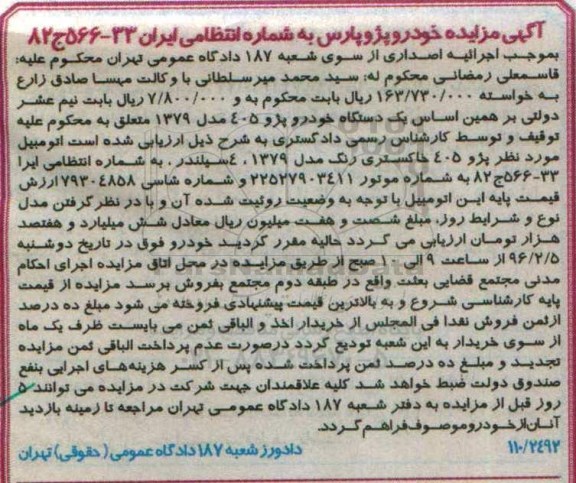 آگهی مزایده خودرو پژو پارس به شماره انتظامی ایران ۳۳-۵۶۶ج۸۲
بموجب اجرائیه اصداری از سوی شعبه ۱۸۷ دادگاه عمومی تهران محکوم علیه:
قاسمعلی رمضانی محکوم له: سید محمد میرسلطانی با وکالت مهسا صادق زارع
به خواسته ۱۶۳/۷۳۰/۰۰۰ ریال بابت محکوم به و ۷/۸۰۰/۰۰۰ ریال بابت نیم عشر
دولتی بر همین اساس یک دستگاه خودرو پژو ۴۰۵ مدل ۱۳۷۹ متعلق به محکوم علیه
توقیف و توسط کارشناس رسمی دادگستری به شرح ذیل ارزیابی شده است اتومبیل
مورد نظر پژو ۴۰۵ خاکستری رنگ مدل ۱۳۷۹، ۴سیلندر، به شماره انتظامی ایرا
۳۳-۵۶۶ج۸۲ به شماره موتور ۲۲۵۲۷۹۰۳۴۱۱ و شماره شاسی ۷۹۳۰۴۸۵۸ ارزش
قیمت پایه این اتومبیل با توجه به وضعیت روئیت شده آن و با در نظر گرفتن مدل
نوع و شرایط روز، مبلغ شصت و هفت میلیون ریال معادل شش میلیارد و هفتصد
هزار تومان ارزیابی می گردد حالیه مقرر گردید خودرو فوق در تاریخ دوشنبه
۹۶/۲/۵ از ساعت ۹ الی ۱۰ صبح از طریق مزایده در محل اتاق مزایده اجرای احکام
مدنی مجتمع قضایی بعثت واقع در طبقه دوم مجتمع بفروش برسد مزایده از قیمت
پایه کارشناسی شروع و به بالاترین قیمت پیشنهادی فروخته می شود مبلغ ده درصد
ازثمن فروش نقدا فی المجلس از خریدار اخذ و الباقی ثمن می بایست ظرف یک ماه
از سوی خریدار به این شعبه تودیع گردد درصورت عدم پرداخت الباقی ثمن مزایده
تجدید و مبلغ ده درصد ثمن پرداخت شده پس از کسر هزینه های اجرایی بنفع
صندوق دولت ضبط خواهد شد کلیه علاقمندان جهت شرکت در مزایده می توانند ۵
روز قبل از مزایده به دفتر شعبه ۱۸۷ دادگاه عمومی تهران مراجعه تا زمینه بازدید
آنان از خودرو موصوف فراهم گردد.
۱۱۰/۲۴۹۲ دادورز شعبه ۱۸۷ دادگاه عمومی (حقوقی) تهران